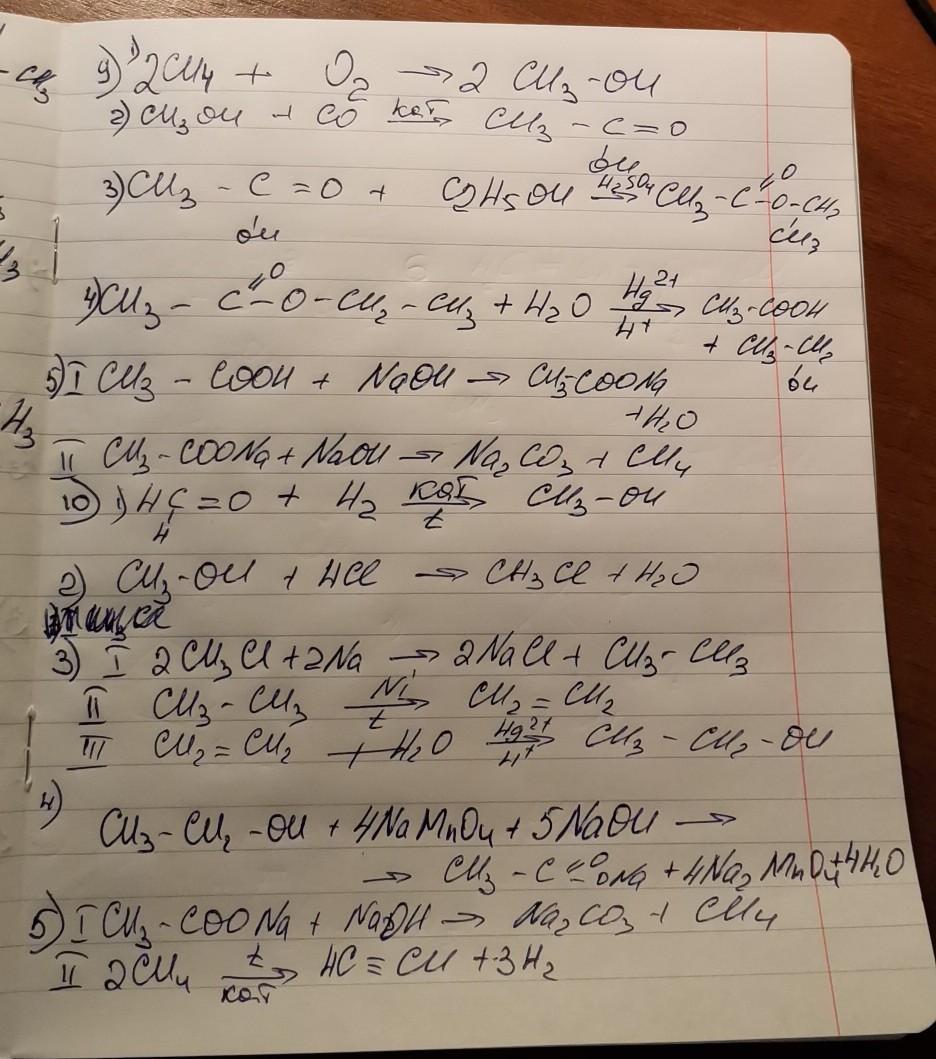 -CH₃
9) 1) 2CH₄ + O₂ → 2 CH₃-OH
2) CH₃OH + CO кат→ CH₃ - C = O
OH
3) CH₃ - C = O + C₂H₅OH H₂SO₄→ CH₃ - C =O -O-CH₂
OH CH₃
4) CH₃ - C =O -O-CH₂-CH₃ + H₂O Hg²⁺ H⁺→ CH₃-COOH
+ CH₃-CH₂
OH
5) I CH₃ - COOH + NaOH → CH₃-COONa
+H₂O
H₃
II CH₃-COONa + NaOH → Na₂CO₃ + CH₄
10) 1) HC = O + H₂ кат t→ CH₃-OH
H
2) CH₃-OH + HCl → CH₃Cl + H₂O
3) I 2CH₃Cl + 2Na → 2NaCl + CH₃-CH₃
II CH₃-CH₃ Ni t→ CH₂=CH₂
III CH₂=CH₂ + H₂O Hg²⁺ H⁺→ CH₃-CH₂-OH
4)
CH₃-CH₂-OH + 4NaMnO₄ + 5NaOH →
→ CH₃-C =O -ONa + 4Na₂MnO₄ + 4H₂O
5) I CH₃-COONa + NaOH → Na₂CO₃ + CH₄
II 2CH₄ t кат→ HC≡CH + 3H₂